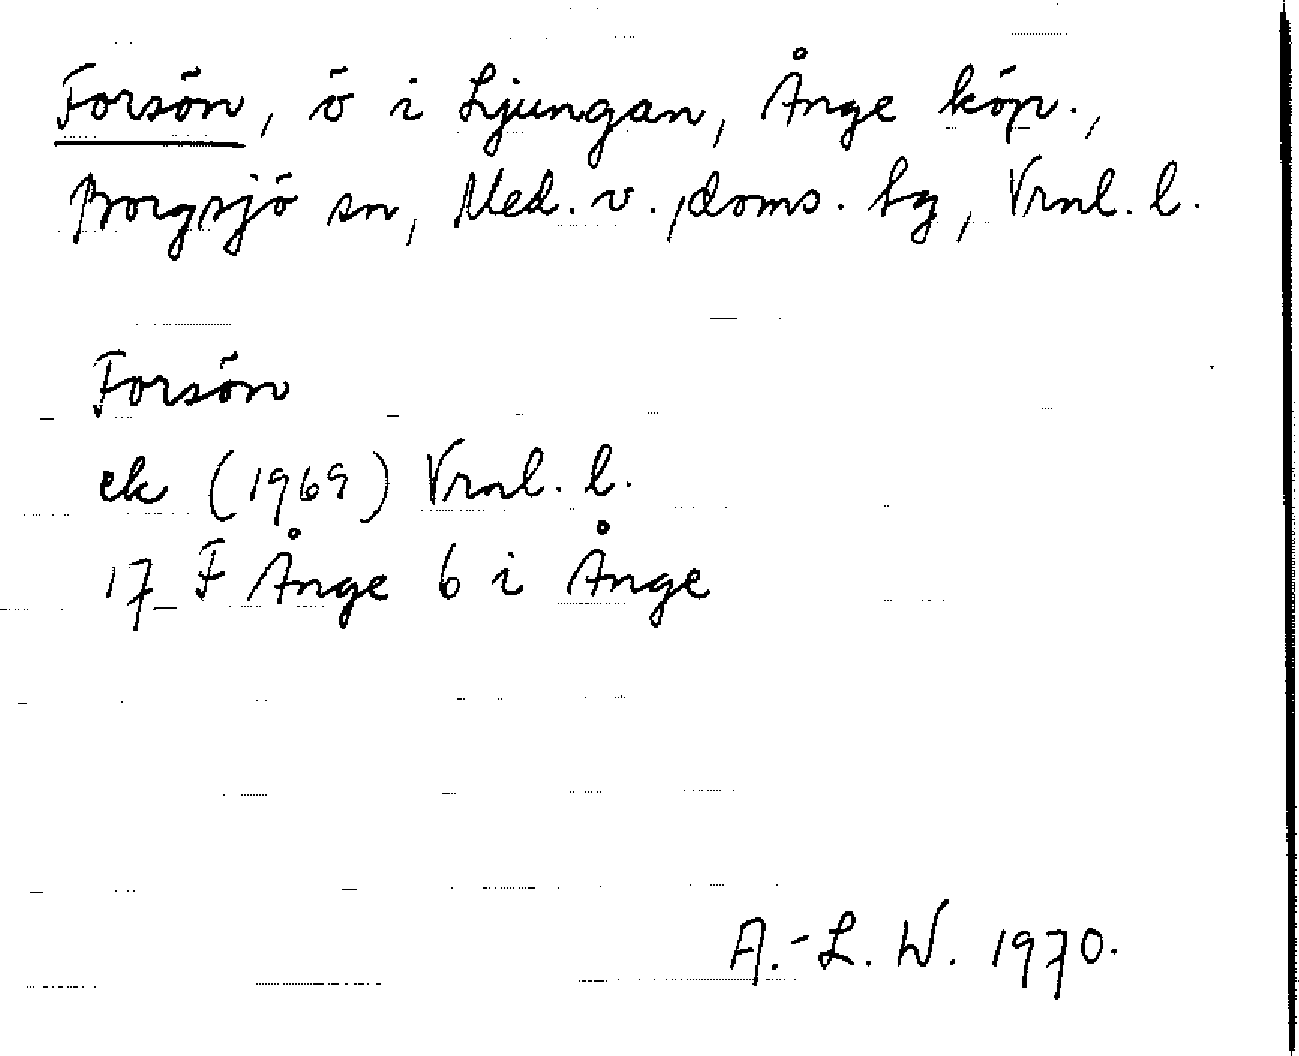 Forsön, ö i Ljungan, Ånge köp.,
Borgsjö sn, Med. v. doms. hg, Vrnl. l.
Forsön
ek (1969) Vrnl. l.
17 F Ånge 6 i Ånge
A.-L. W. 1970.